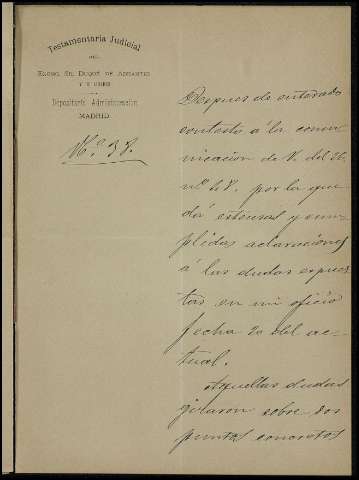 Testamentaria Judicial
DEL
EXCMO. SR. DUQUE DE
Depositaría Administración
MADRID
N.º 38.
Despues de enterado
contesto á la comu-
nicacion de V. del 21.
nº 48. por la que
dá estensas y cum-
plidas aclaraciones
á las dudas espues-
tas en mi oficio
fecha 20 del ac-
tual.
Aquellas dudas
giraron sobre dos
puntos concretos